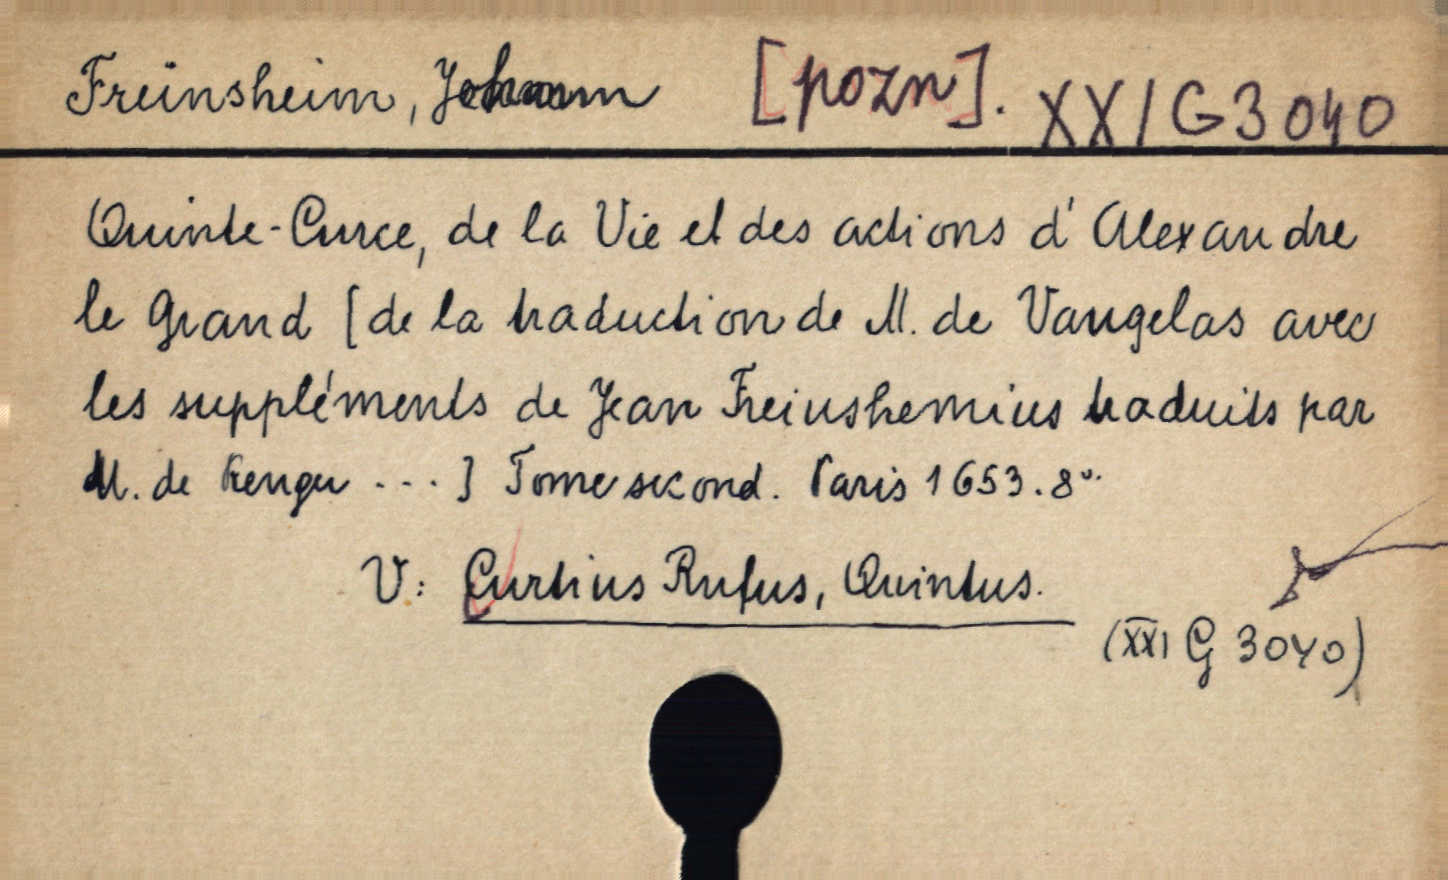 Freinsheim, Johann [pozn]. XXI G 3040
Quinte-Curce, de la Vie et des actions d'Alexandre
le Grand [de la traduction de M. de Vaugelas avec
les suppléments de Jean Freinshemius traduits par
M. de ... ] Tome second. Paris 1653. 8º.
V: Curtius Rufus, Quintus.
(XXI G 3040)